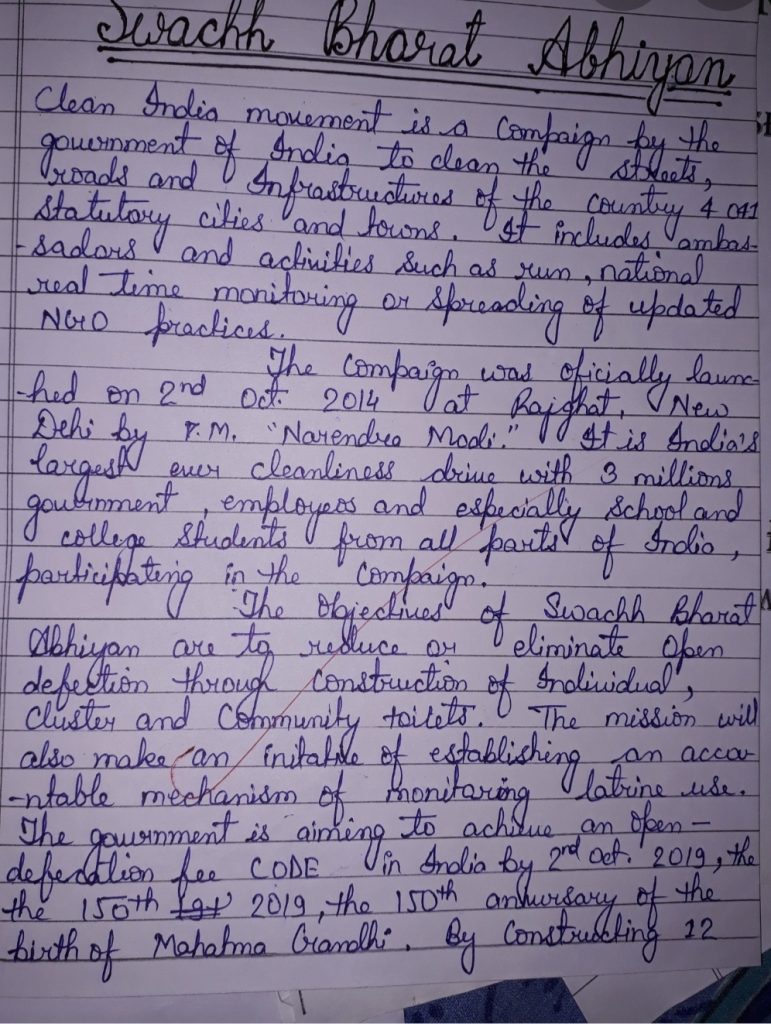 Swachh Bharat Abhiyan
Clean India movement is a Compaign by the
government of India to clean the streets,
roads and Infrastructures of the country 4 041
Statutory cities and towns. It includes ambas-
-sadors and activities such as run, national
real time monitoring or spreading of updated
NGO practices.
The Compaign was oficially launc-
-hed on 2nd Oct. 2014 at Rajghat, New
Dehi by P.M. "Narendra Modi." It is India's
largest ever cleanliness drive with 3 millions
government, employees and especially School and
college Students from all parts of India,
participating in the Compaign.
The Objectives of Swachh Bharat
Abhiyan are to reduce or eliminate Open
defection through Construction of Individual,
Cluster and Community toilets. The mission will
also make an initative of establishing an accou
-ntable mechanism of monitoring latrine use.
The government is aiming to achieve an Open-
defecation fee CODE in India by 2nd Oct. 2019, the
the 150th 2019, the 150th anniversary of the
birth of Mahatma Gandhi. By Constructing 12